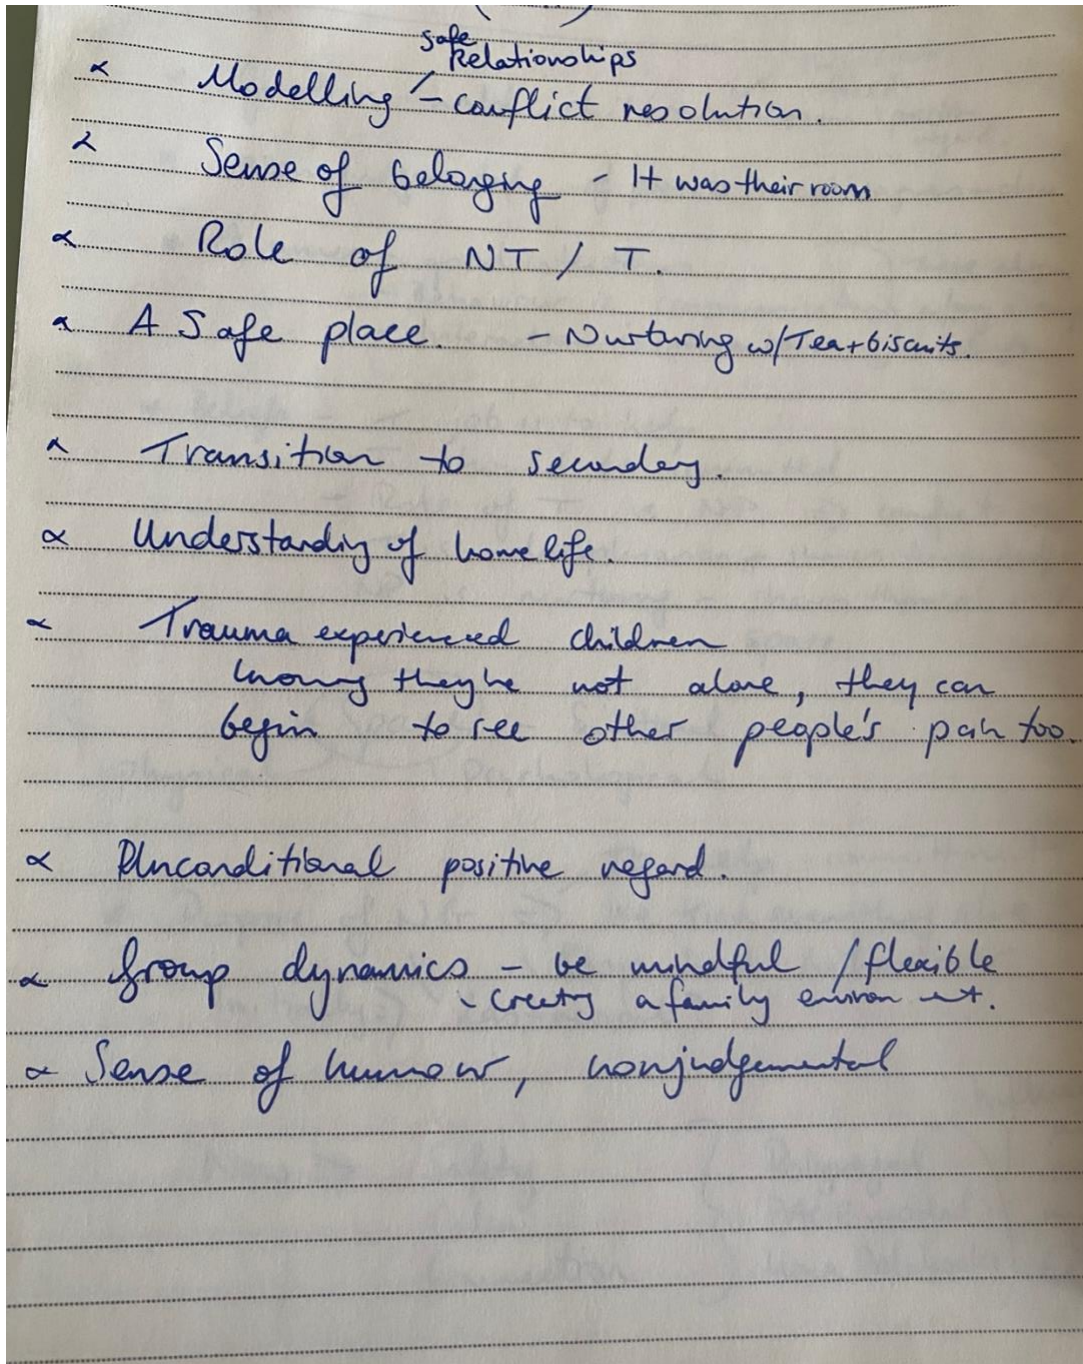 safe
Relationships
∝ Modelling - conflict resolution.
∝ Sense of belonging - It was their room
∝ Role of NT / T.
∝ A Safe place. - Nurturing w/ Tea + biscuits.
∝ Transition to secondary.
∝ Understanding of home life.
∝ Trauma experienced children
knowing they're not alone, they can
begin to see other people's pain too.
∝ Unconditional positive regard.
∝ Group dynamics - be mindful / flexible
- Creating a family environment.
∝ Sense of humour, nonjudgemental